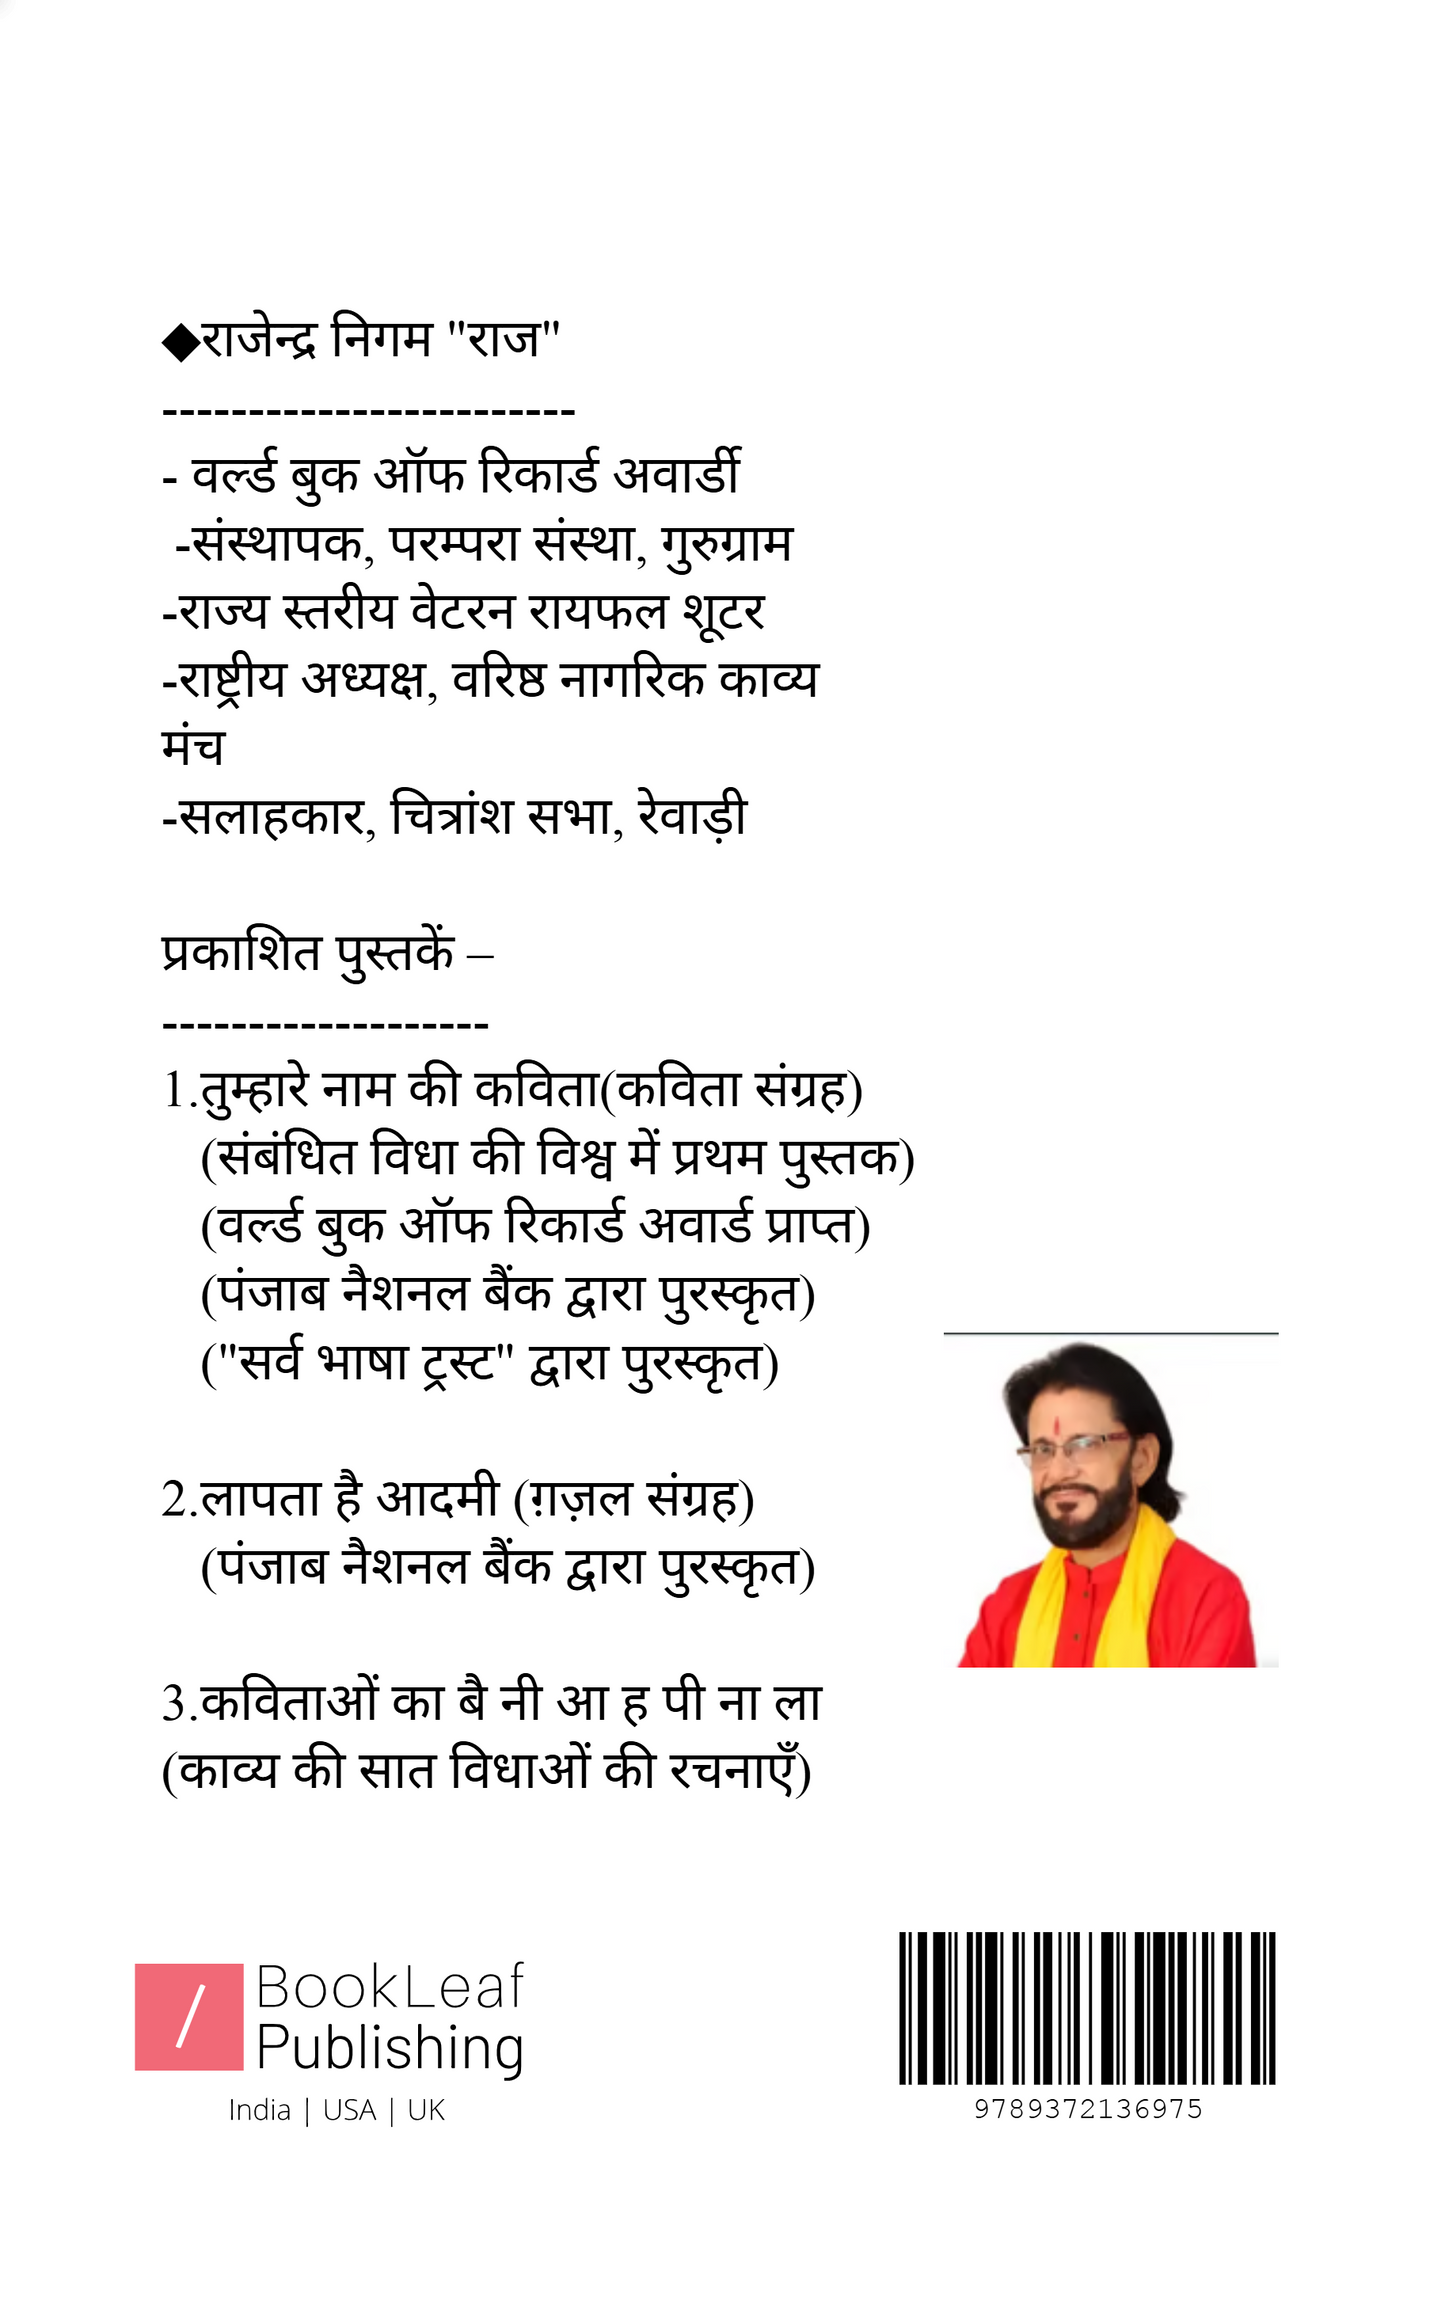 ◆राजेन्द्र निगम "राज"
------------------------
- वर्ल्ड बुक ऑफ रिकार्ड अवार्डी
-संस्थापक, परम्परा संस्था, गुरुग्राम
-राज्य स्तरीय वेटरन रायफल शूटर
-राष्ट्रीय अध्यक्ष, वरिष्ठ नागरिक काव्य
मंच
-सलाहकार, चित्रांश सभा, रेवाड़ी
प्रकाशित पुस्तकें –
-------------------
1.तुम्हारे नाम की कविता(कविता संग्रह)
(संबंधित विधा की विश्व में प्रथम पुस्तक)
(वर्ल्ड बुक ऑफ रिकार्ड अवार्ड प्राप्त)
(पंजाब नैशनल बैंक द्वारा पुरस्कृत)
("सर्व भाषा ट्रस्ट" द्वारा पुरस्कृत)
2.लापता है आदमी (ग़ज़ल संग्रह)
(पंजाब नैशनल बैंक द्वारा पुरस्कृत)
3.कविताओं का बै नी आ ह पी ना ला
(काव्य की सात विधाओं की रचनाएँ)
BookLeaf
Publishing
India | USA | UK
9789372136975